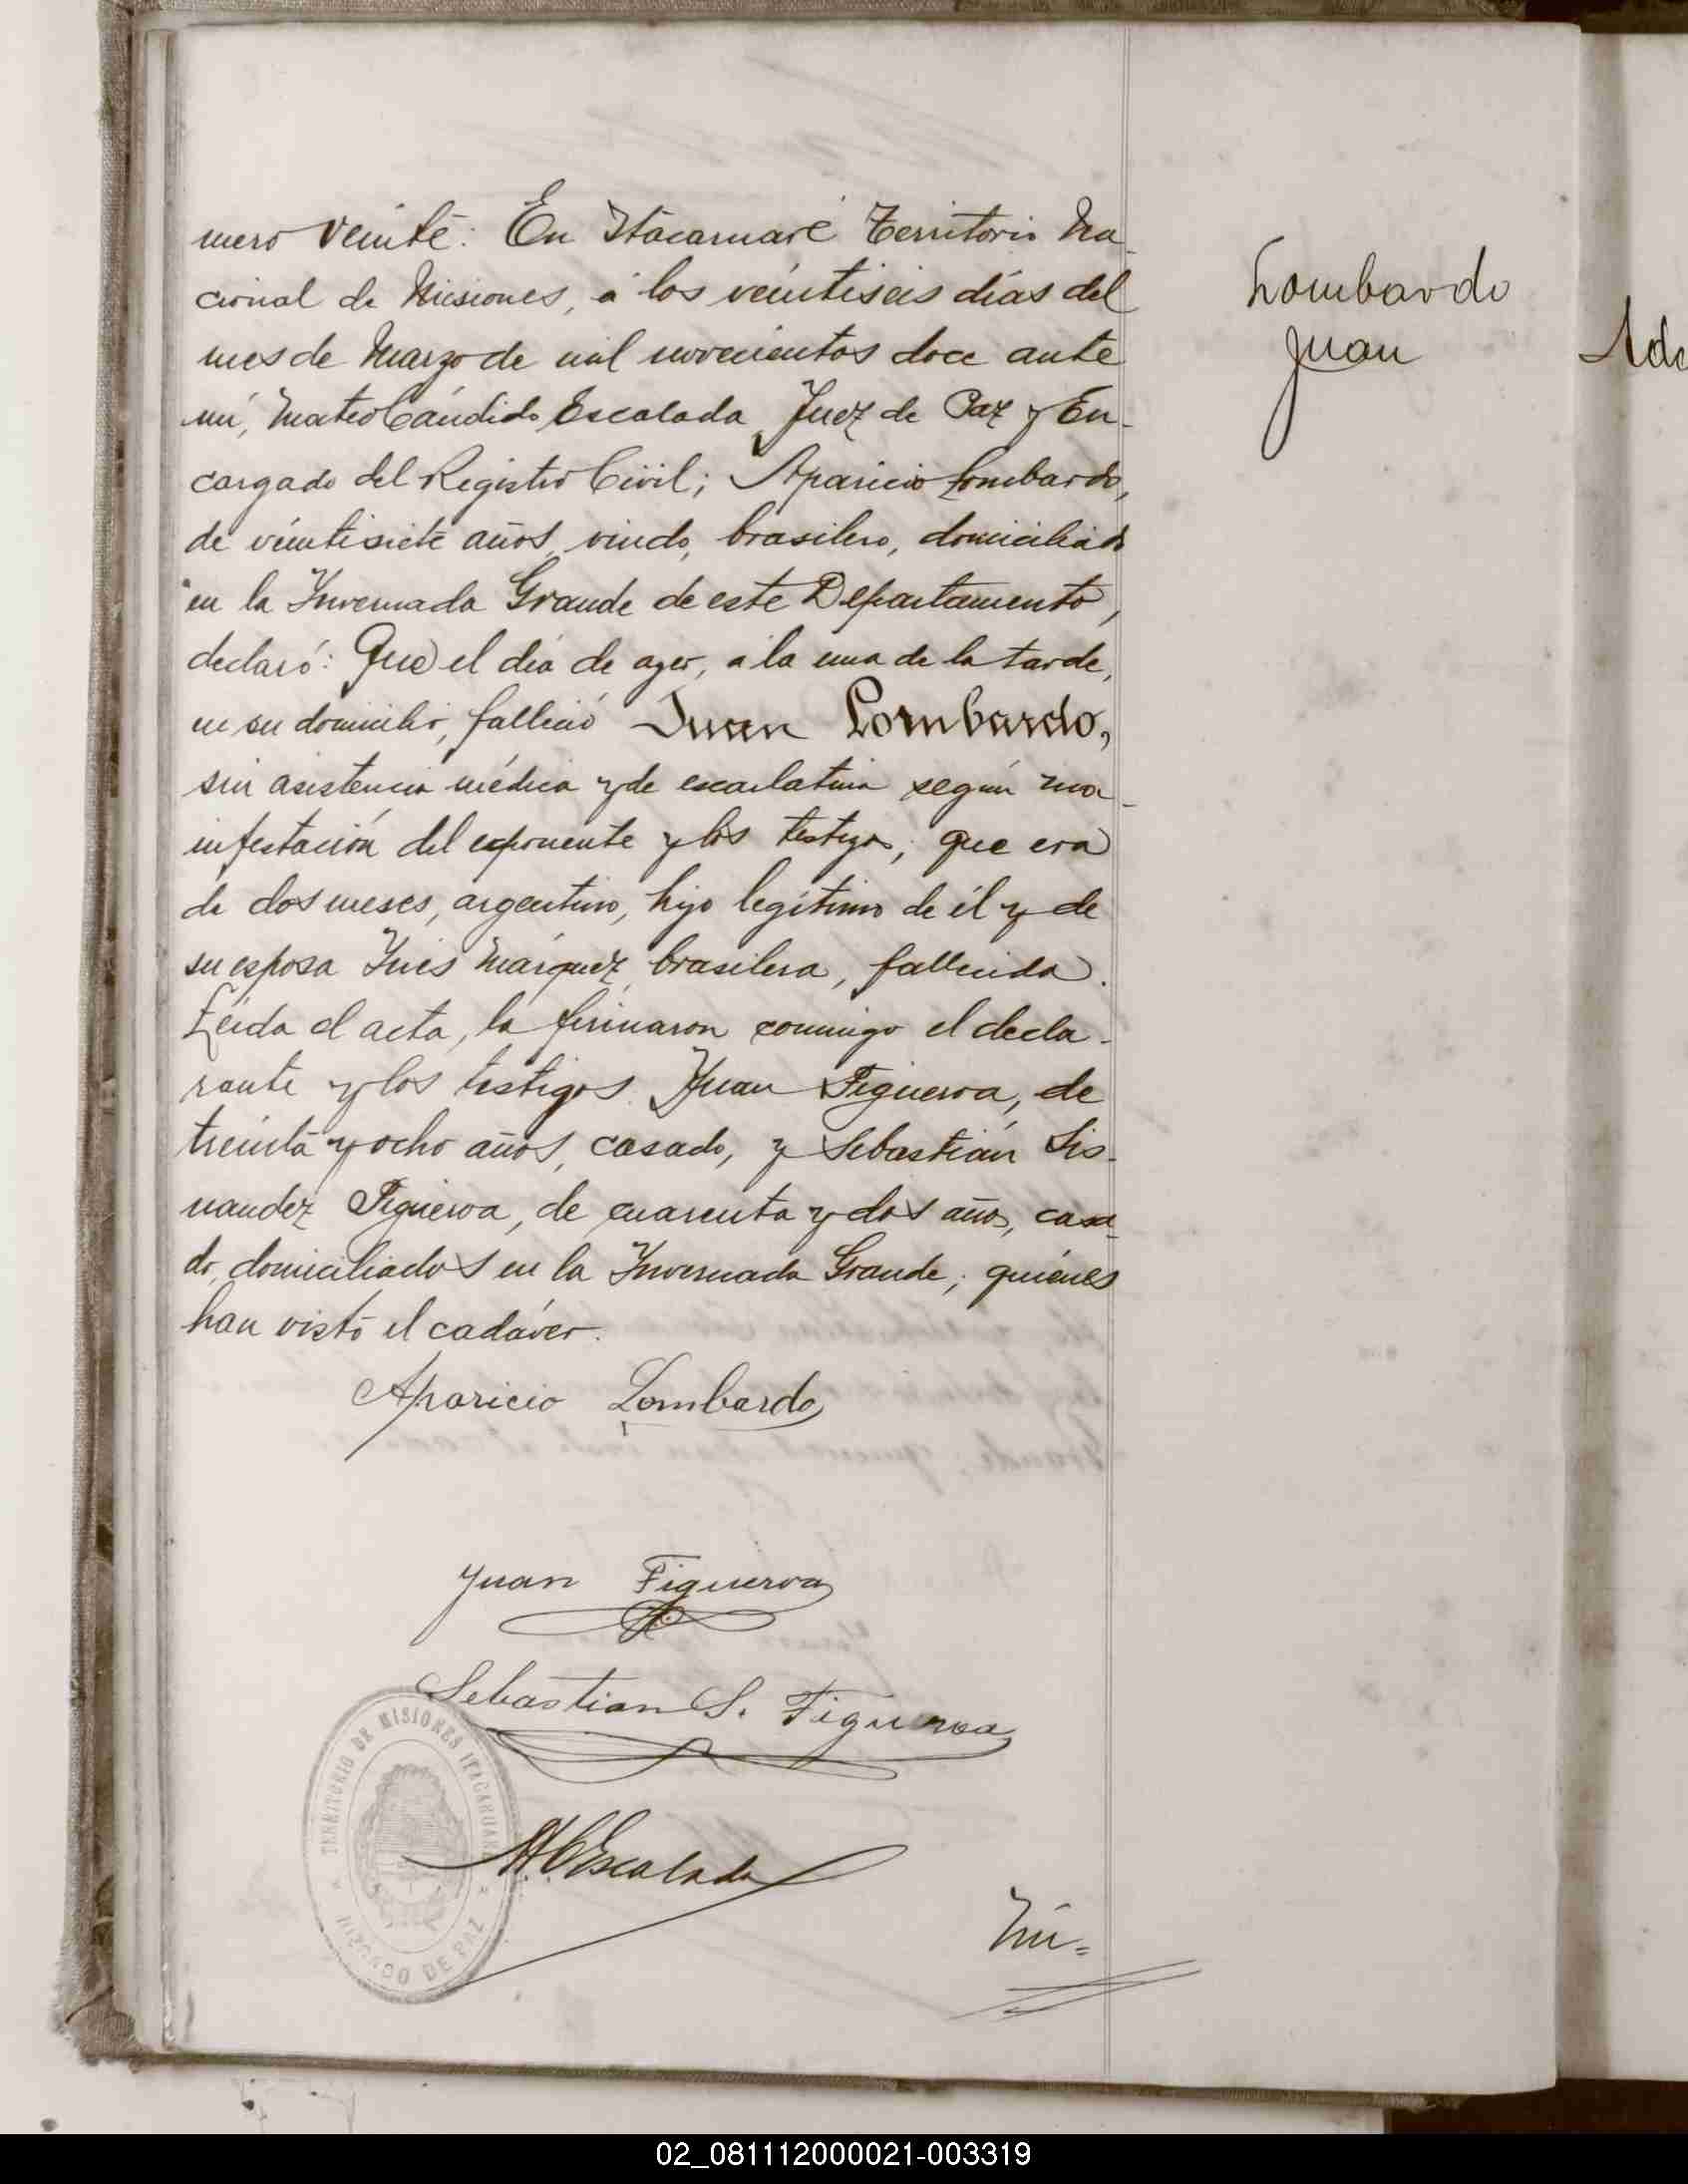 mero veinte: En Itacaruaré Territorio Na-
cional de Misiones, á los veintiseis días del
mes de Marzo de mil novecientos doce ante
mí, Mateo Cándido Escalada Juez de Paz y En-
cargado del Registro Civil; Aparicio Lombardo,
de veintisiete años, viudo, brasilero, domiciliado
en la Invernada Grande de este Departamento,
declaró: Que el día de ayer, a la una de la tarde,
en su domicilio, falleció Juan Lombardo,
sin asistencia médica y de escarlatina según ma-
infestación del exponente y los testigos; que era
de dos meses, argentino, hijo legítimo de él y de
su esposa Inés Márquez, brasilera, fallecida.
Leída el acta, la firmaron conmigo el decla-
rante y los testigos Juan Figueroa, de
treinta y ocho años, casado, y Sebastián Sis-
nandez Figueroa, de cuarenta y dos años, casa-
do, domiciliados en la Invernada Grande; quiénes
han visto el cadáver.
Aparicio Lombardo
Juan Figueroa
Sebastian S. Figueroa
M.C. Escalada
TERRITORIO DE MISIONES ITACARUARE
JUZGADO DE PAZ
Nú=
Lombardo
Juan
02_081112000021-003319